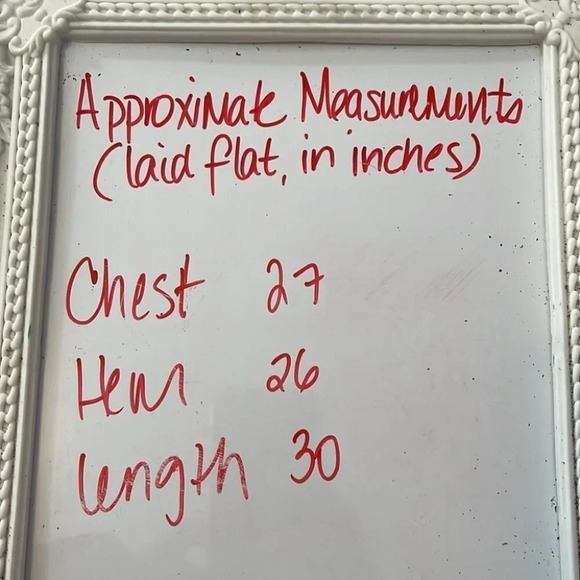 Approximate Measurements
(laid flat, in inches)
Chest 27
Hem 26
length 30